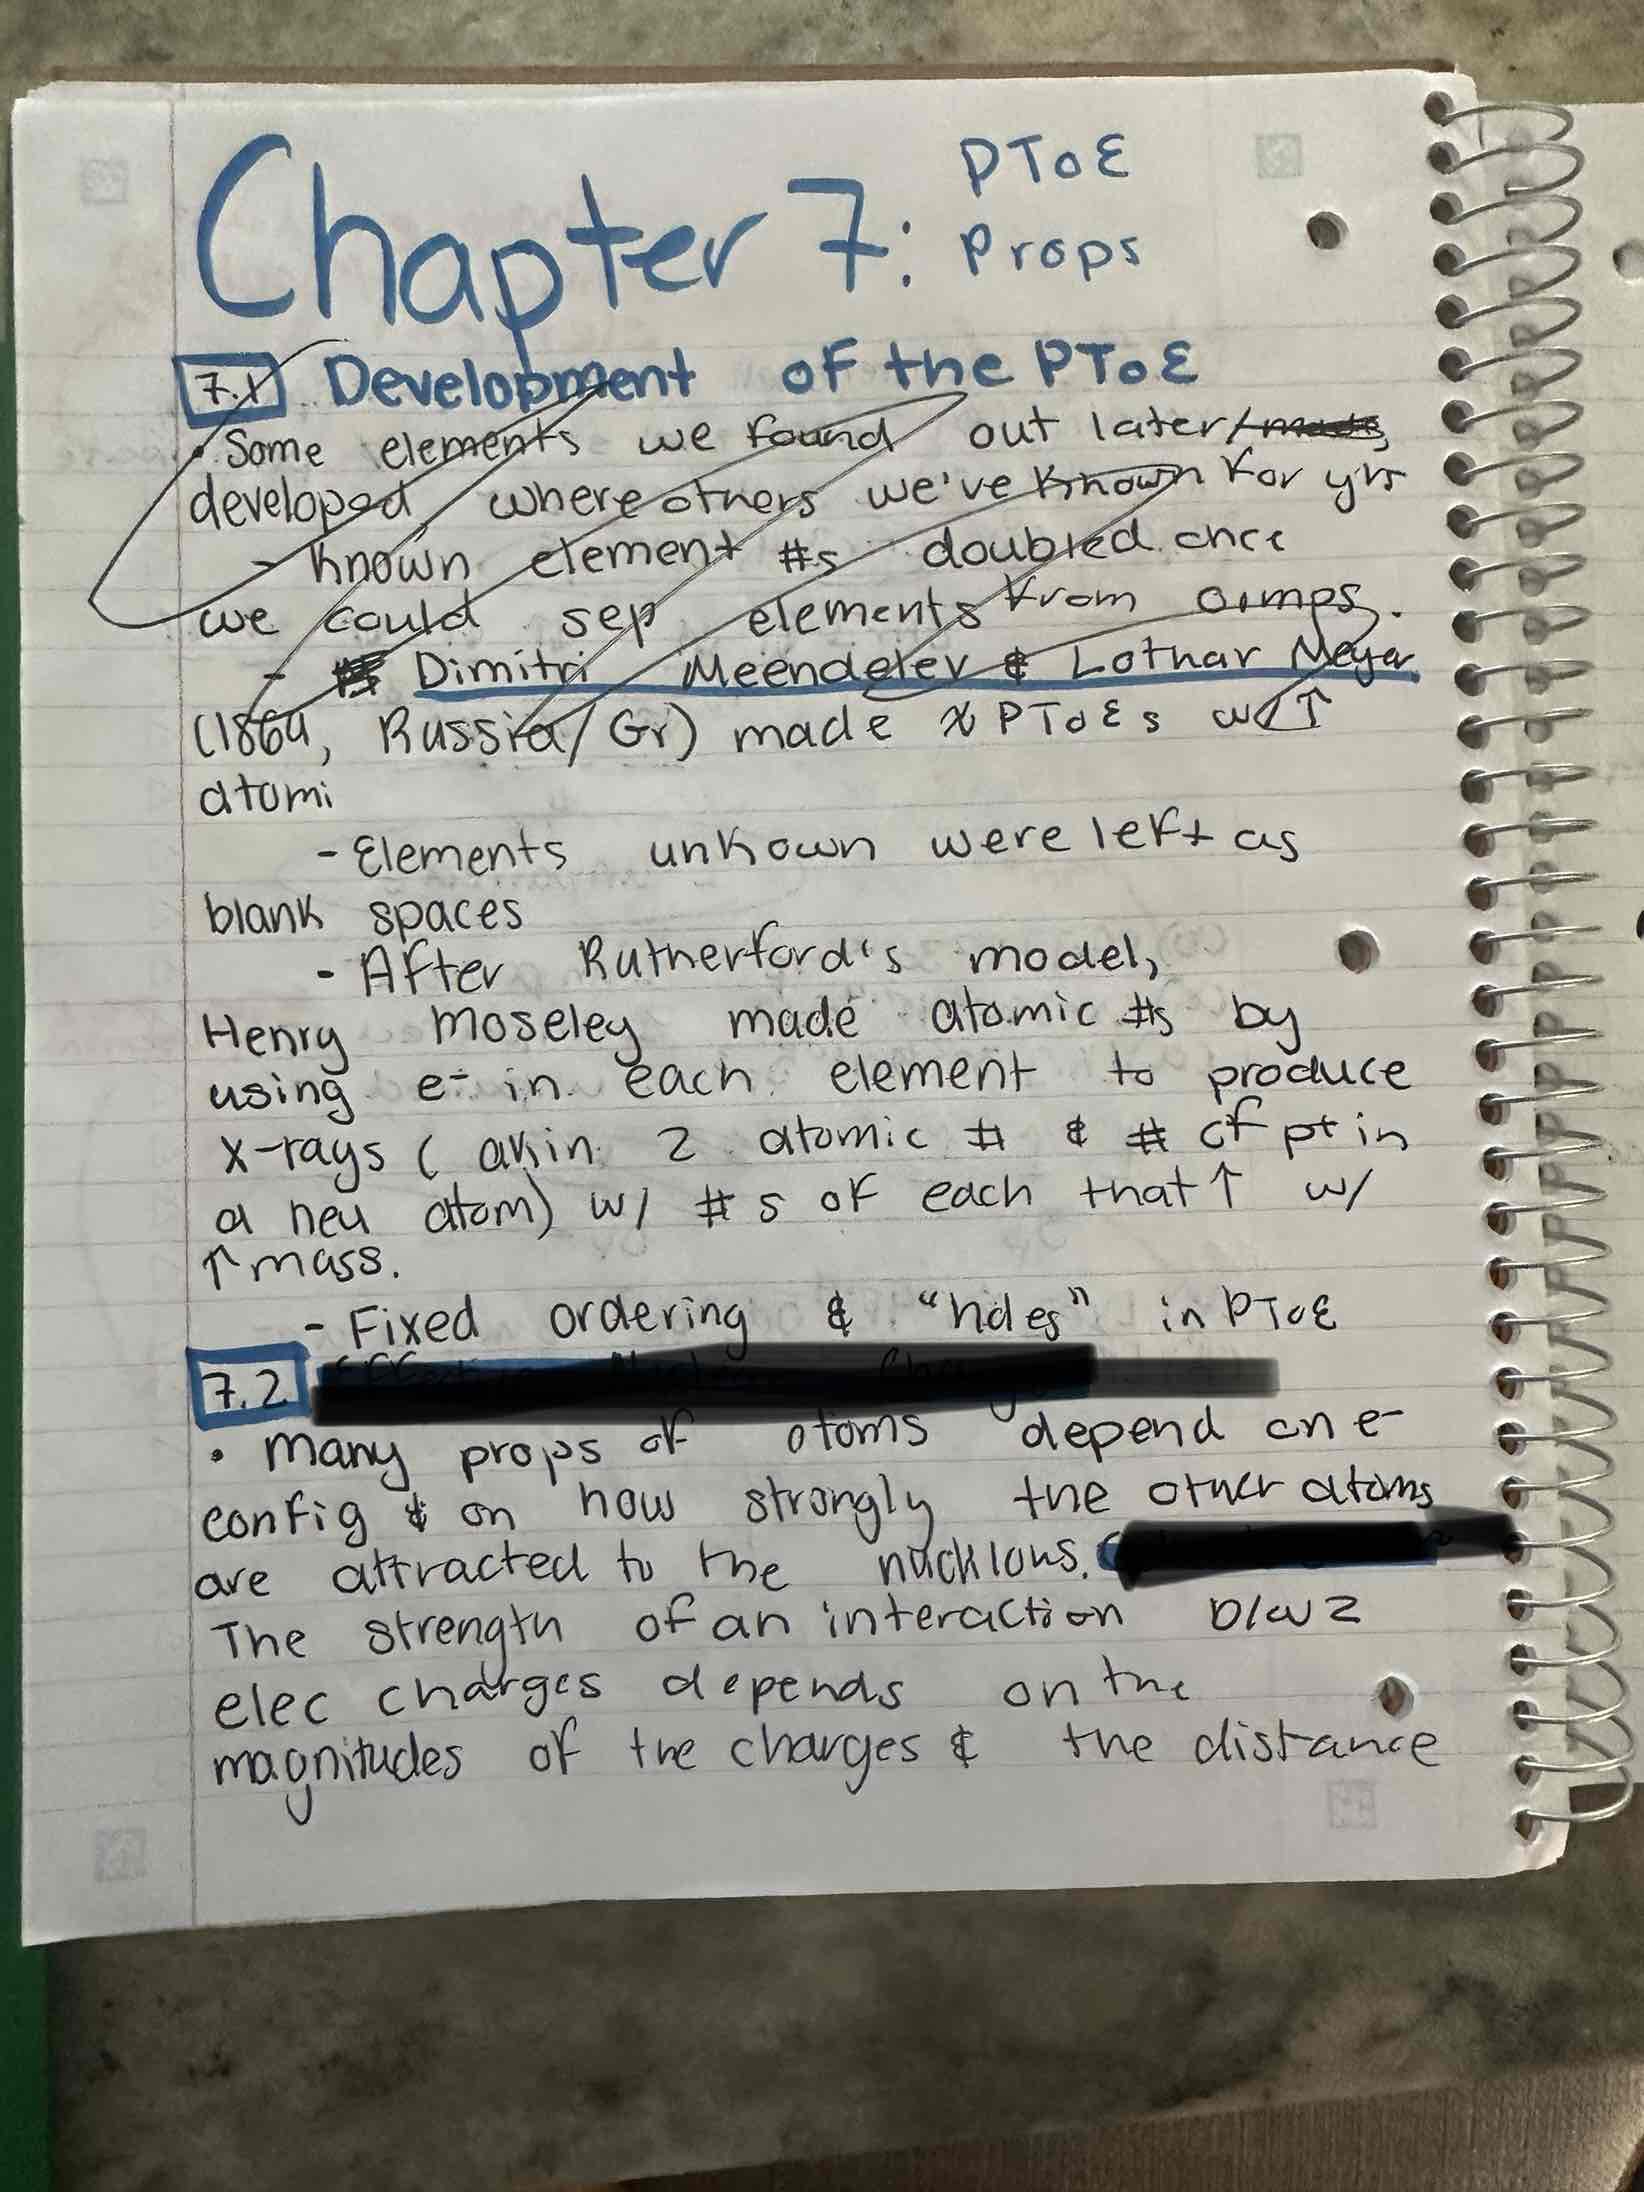 Chapter 7: PToE Props
7.1 Development of the PToE
• Some elements we found out later/
developed where others we've known for yrs
- known element #s doubled once
we could sep elements from comps.
- Dimitri Meendelev & Lothar Meyer
(1869, Russia/Gr) made PToEs w/ ↑
atomi
- Elements unkown were left as
blank spaces
- After Rutherford's model,
Henry Moseley made atomic #s by
using e- in each element to produce
x-rays ( akin 2 atomic # & # of p+ in
a neu atom) w/ #s of each that ↑ w/
↑ mass.
- Fixed ordering & "holes" in PToE
7.2
• Many props of atoms depend on e-
config & on how strongly the other atoms
are attracted to the
The strength of an interaction b/w 2
elec charges depends on the
magnitudes of the charges & the distance